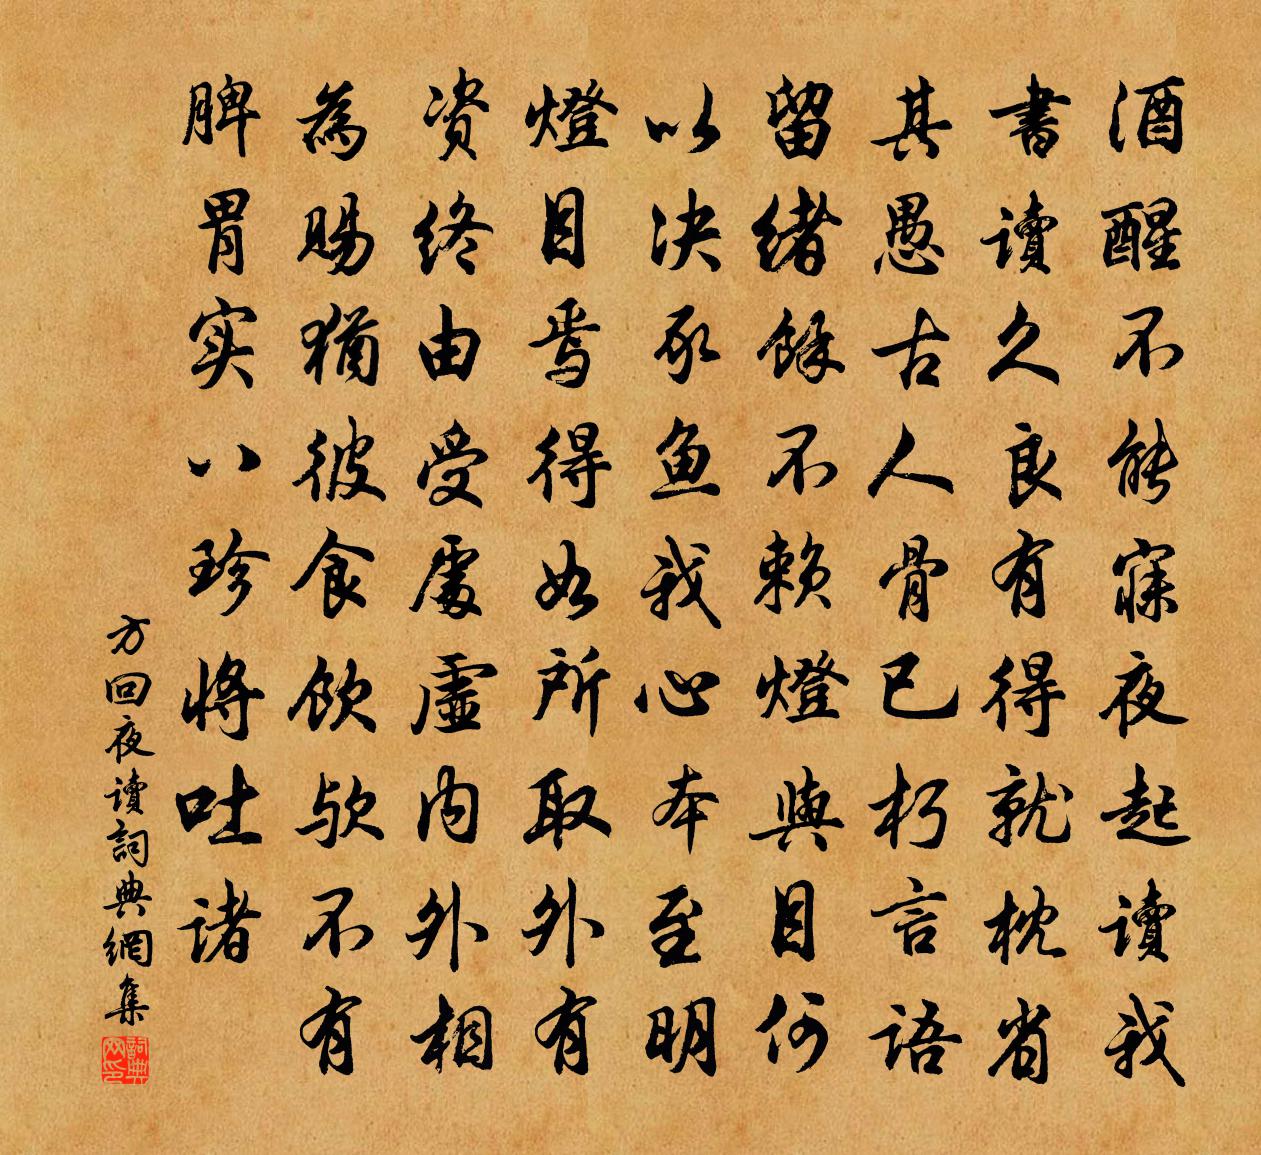 酒醒不能寐夜起讀我
書讀久良有得就枕省
其愚古人骨已朽言語
留緒餘不赖燈與目何
以決豕鱼我心本至明
燈目焉得如所取外有
资終由受處虛内外相
為賜猶彼食飲欤不有
脾胃实八珍将吐诸
方回夜讀詞典網集
詞典网印